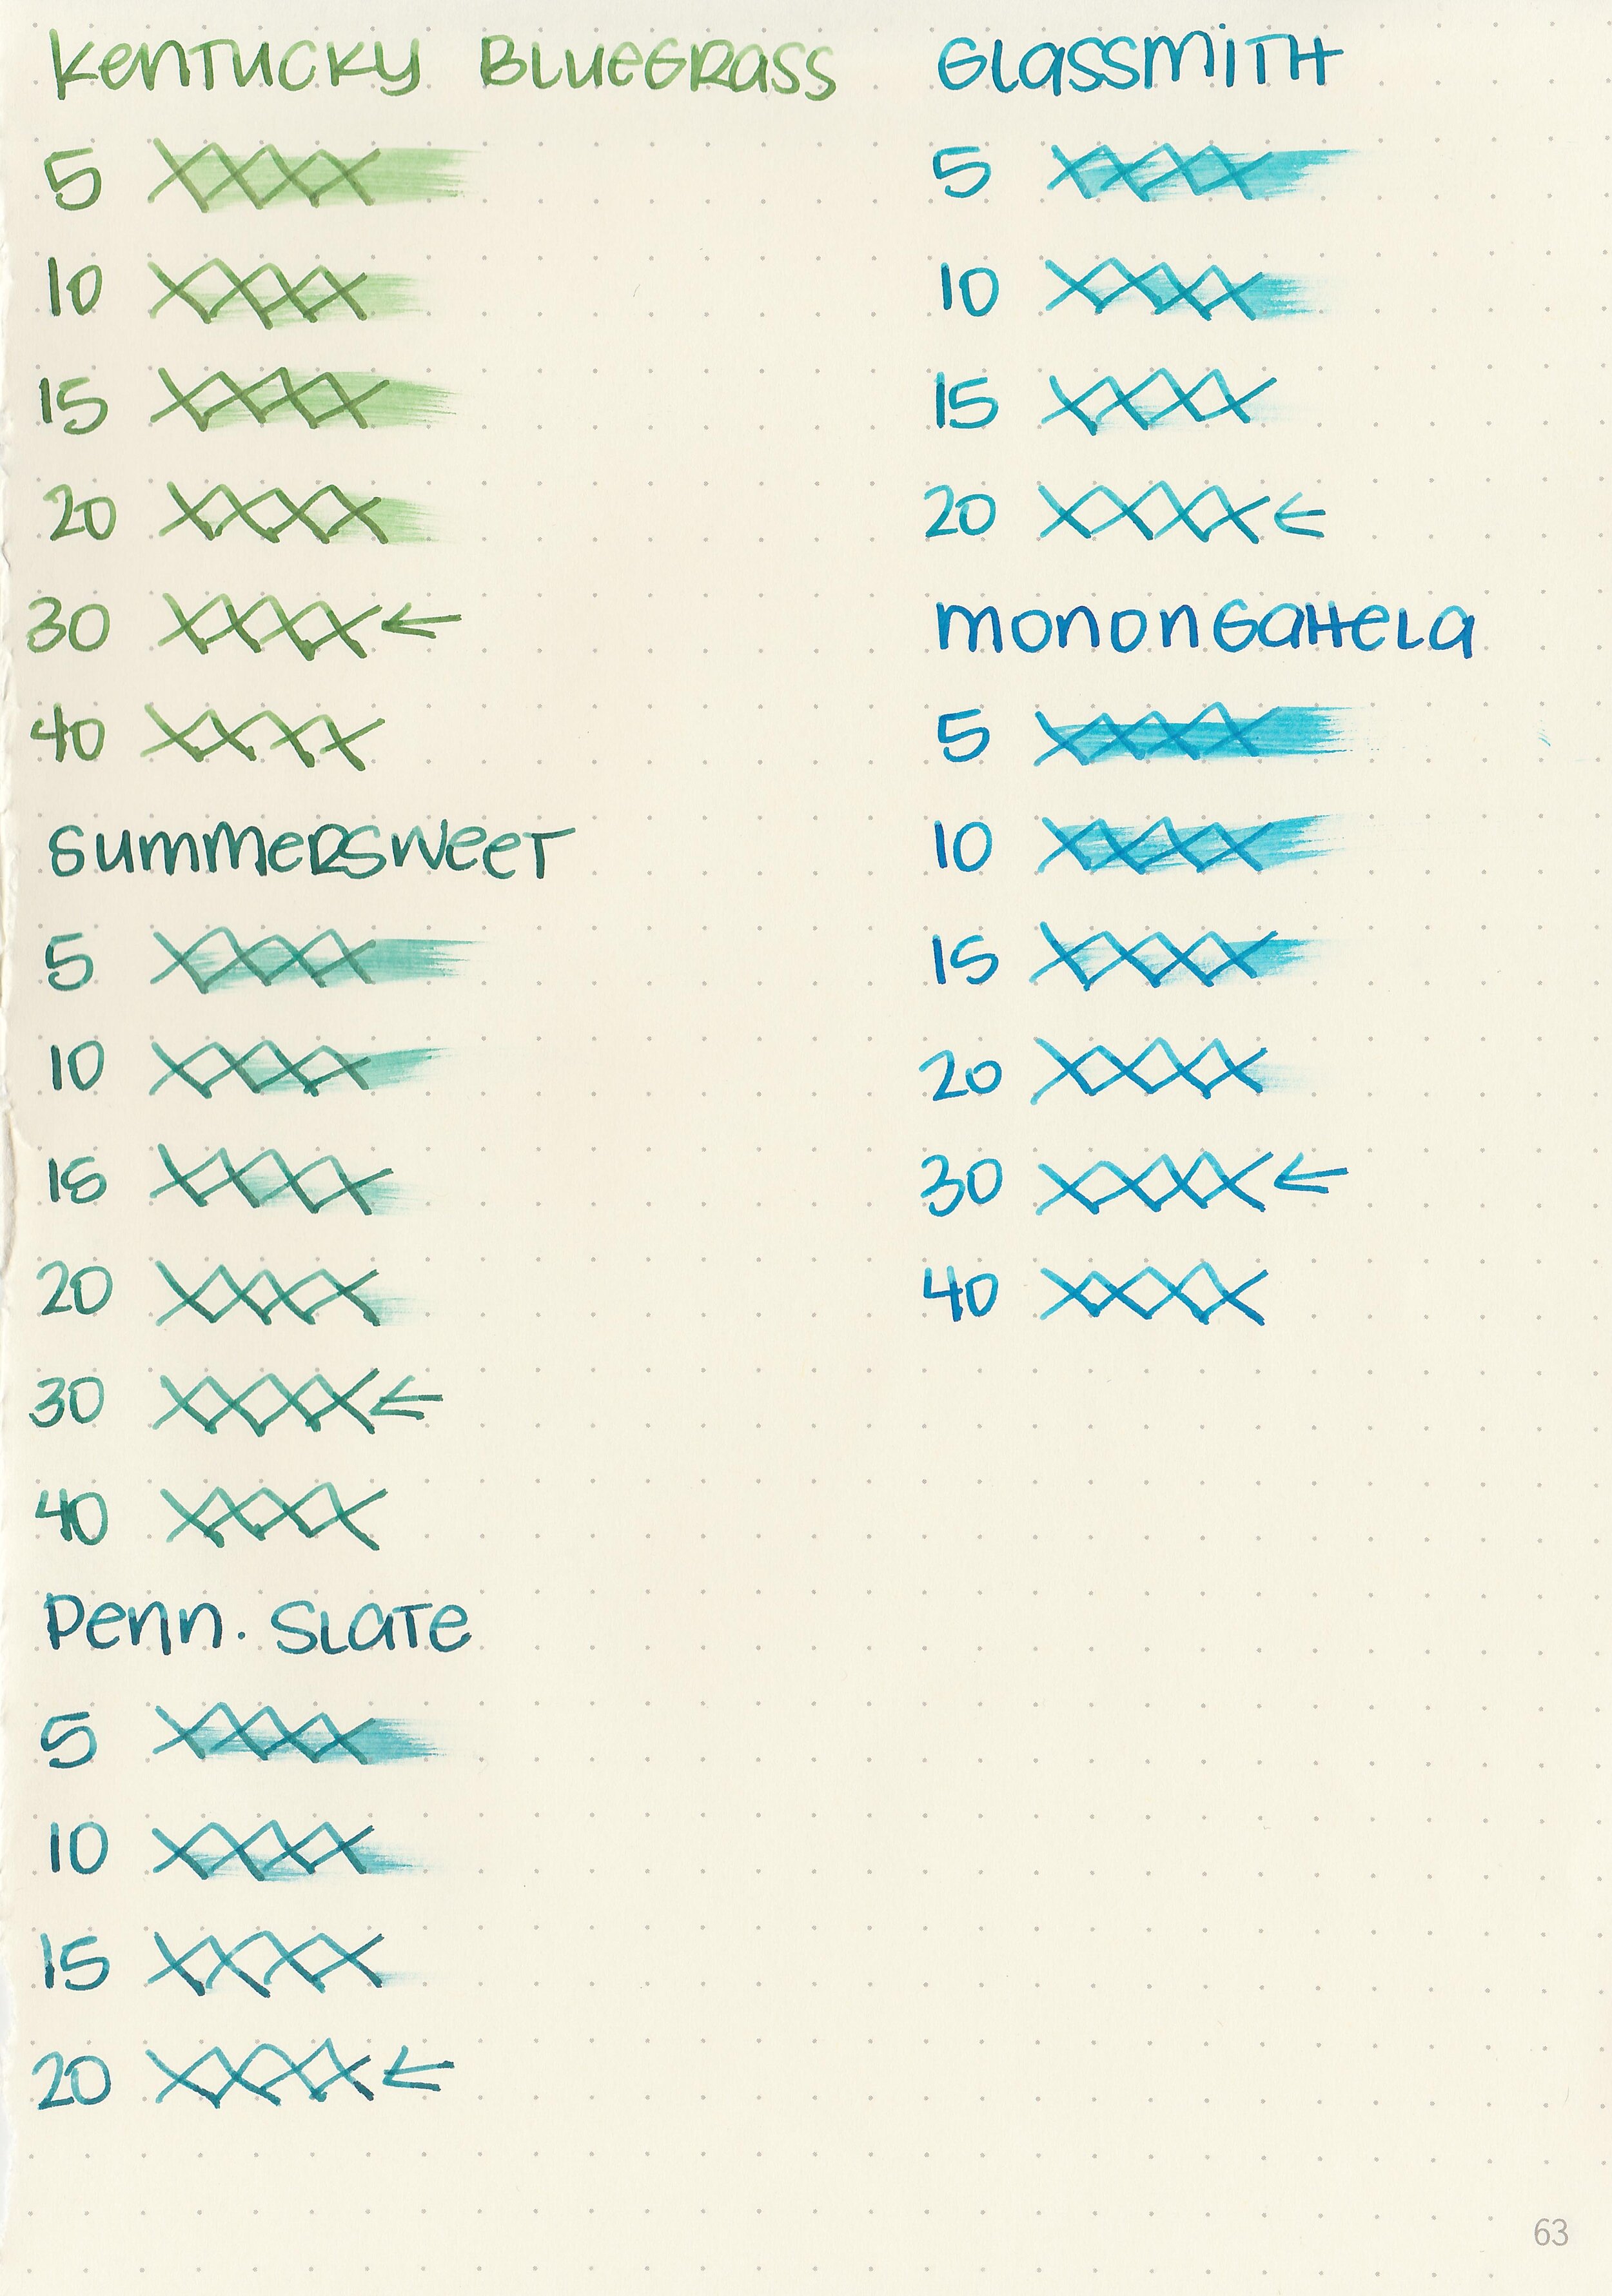 Kentucky Bluegrass
5 XXXX
10 XXXX
15 XXXX
20 XXXX
30 XXXX ←
40 XXXX
Summersweet
5 XXXX
10 XXXX
15 XXXX
20 XXXX
30 XXXX ←
40 XXXX
Penn. Slate
5 XXXX
10 XXXX
15 XXXX
20 XXXX ←
Glassmith
5 XXXX
10 XXXX
15 XXXX
20 XXXX ←
Monongahela
5 XXXX
10 XXXX
15 XXXX
20 XXXX
30 XXXX ←
40 XXXX
63